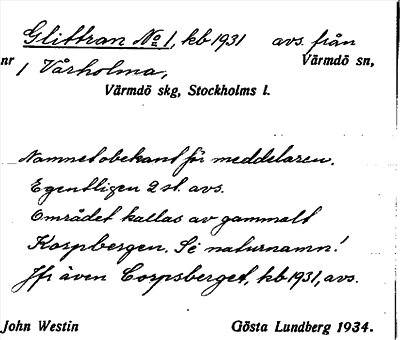 Glittran No 1, kb 1931 avs. från
nr 1 Vårholma, Värmdö sn,
Värmdö skg, Stockholms l.
Namnet obekant för meddelaren.
Egentligen 2 st. avs.
Området kallas av gammalt
Korpbergen. Se naturnamn!
Jfr även Corpsberget, kb 1931, avs.
John Westin Gösta Lundberg 1934.